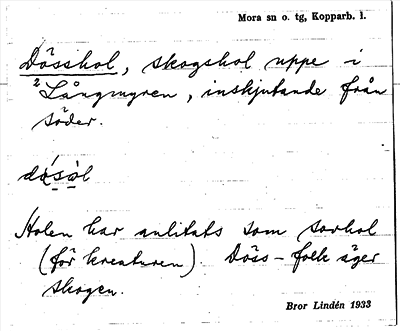 Mora sn o. tg, Kopparb. l.
Dösshol, skogshol uppe i
2 Långmyren, inskjutande från
söder.
Holen har anlitats som sovhol
(för kreaturen). Döss-folk äger
skogen.
Bror Lindén 1933